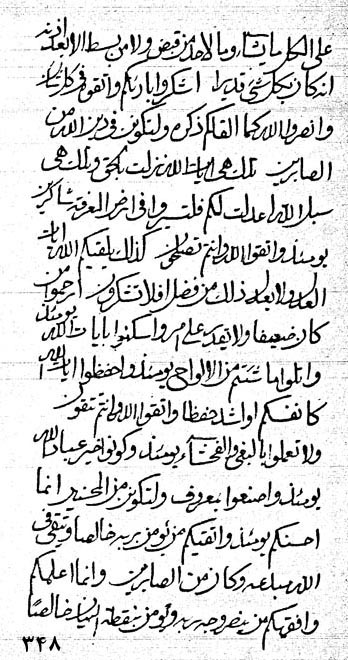 على الكل ما يشاء وما لاحد من قبض ولا من بسط الا بعد اذنه
انه كان بكل شئ قديرا اشكروا بارئكم واتقوه في كل شان
وانصروا الله كما القاكم ذكره ولتكونن في دين الله من
الصابرين تلك هي ايات الله نزلت بالحق وتلك هي
سبل الله اعدلت لكم فلتسيروا في ارض المعرفة شاكرين
يومئذ واتقوا الله وانتم تصلحون كذلك يلقيكم الله ايات
العدل ولا يعدل ذلك من فضل افلا تشكرون ارحموا من
كان ضعيفا ولا يقدر على امر واسكنوا بايات الله يومئذ
واتلوا ما شئتم من الالواح يومئذ واحفظوا ايات الله
كانفسكم او اشد حفظا واتقوا الله وانتم تتقون
ولا تعلوا بالبغي والفحشاء يومئذ وكونوا خير عباد الله
يومئذ واصنعوا بمعروف ولتكونن من المحسنين انما
احسنكم يومئذ واتقيكم من يؤمن بربه خالصا ويتقى في
الله مباعه وكان من الصابرين وانما اعلمكم
وافقهكم من ينصر وجه ربه ويؤمن بنقطة البيان خالصا
٣٤٨